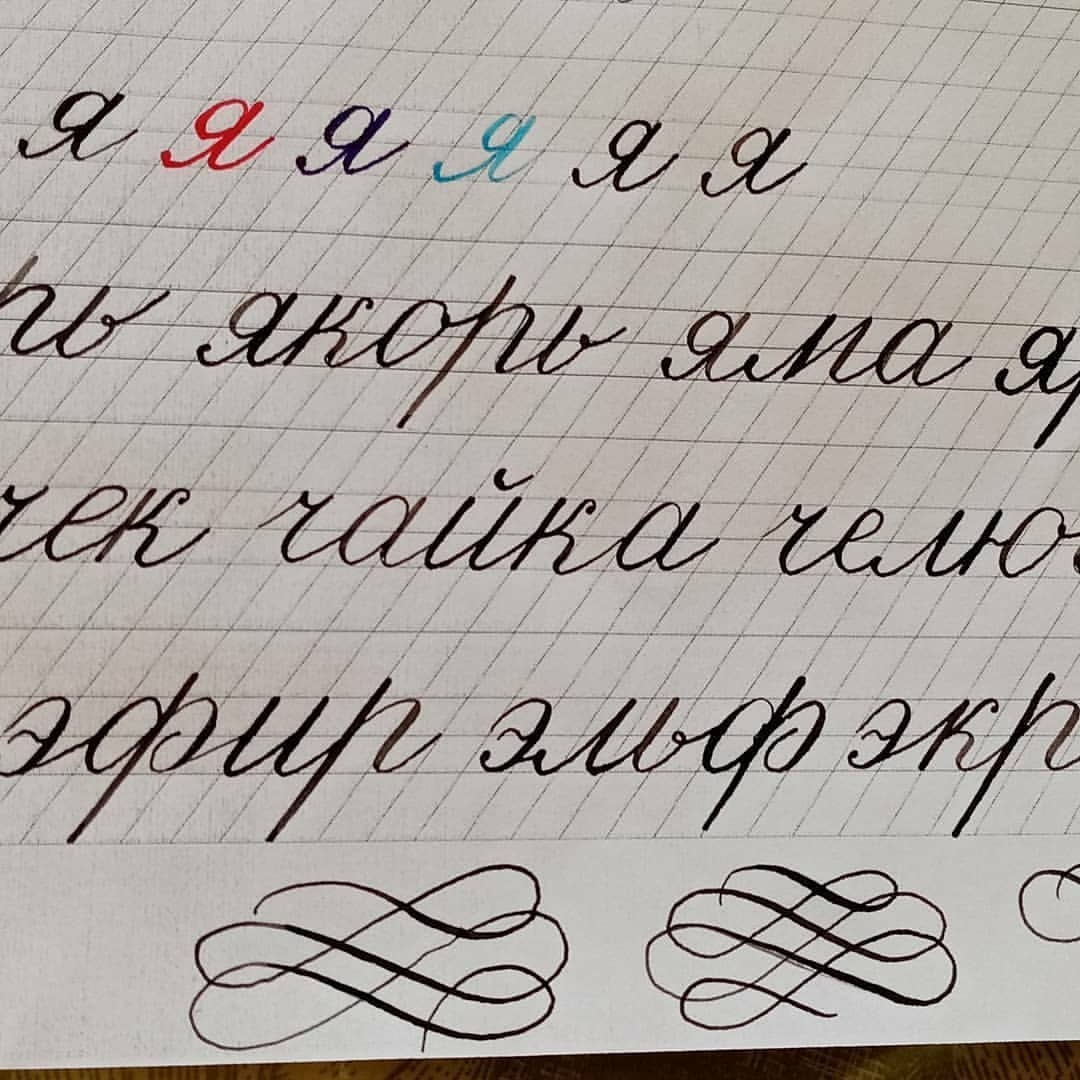 я я я я я я
рь якорь яма яр
чек чайка челю
эфир эльф экр